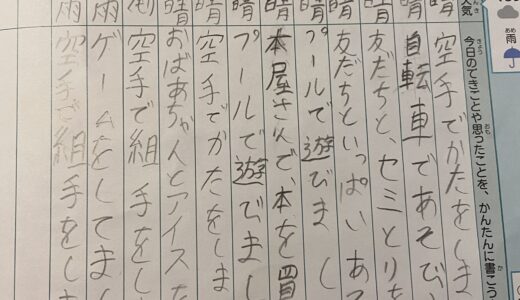 雨
あめ
天気
今日のできごとや思ったことを、かんたんに書こう
晴 空手でかたをしま
晴 自転車であそび
晴 友だちと、セミとりを
晴 友だちといっぱいあ
晴 プールで遊びまし
晴 本屋さんで、本を買
晴 プールで遊びまし
晴 空手でかたをしま
晴 おばあちゃんとアイスを
空手で組手をし
雨 ゲームをしてまし
雨 空手で組手をしま